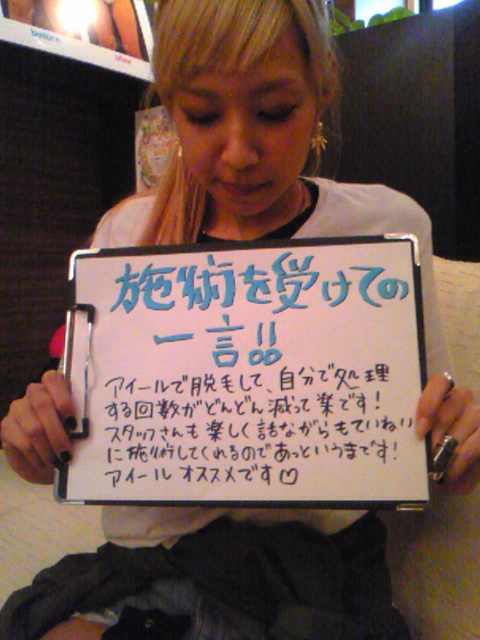 before
after
施術を受けての
一言!!
アイールで脱毛して、自分で処理
する回数がどんどん減って楽です!
スタッフさんも楽しく話ながらもていねい
に施術してくれるのであっというまです!
アイール オススメです♡